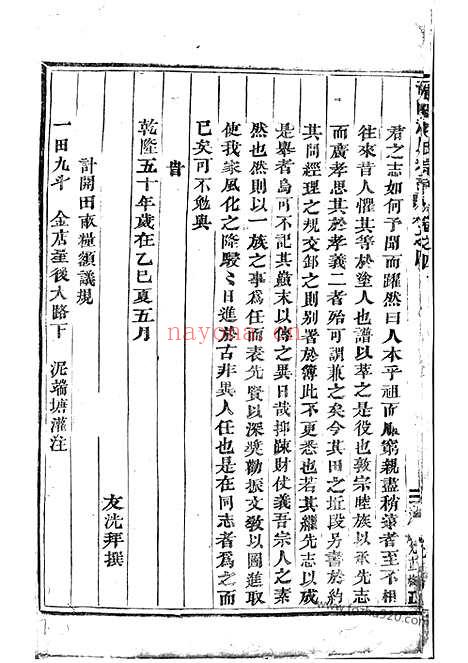 君之志如何予聞而躍然曰人本乎祖而服窮親盡稍遠者至不相
往來昔人懼其等於塗人也譜以萃之是役也敦宗睦族以承先志
而廣孝思其於孝義二者殆可謂兼之矣今其田之坵段另書於約
其間經理之規交卸之則別著於簿此不更悉也若其繼先志以成
是舉者烏可不記其巔末以俟之異日哉抑疎財仗義吾宗人之素
然也然以一族之事為任而表先賢以深獎勸振文教以圖進取
使我家風化之隆駸駸日進於古非異人任也是在同志者為之而
已矣可不勉與
旹
乾隆五十年歲在乙巳夏五月
友沈拜撰
計開田畝糧額議規
一田九斗 金店壟後大路下 泥端塘灌注
nayona.cn